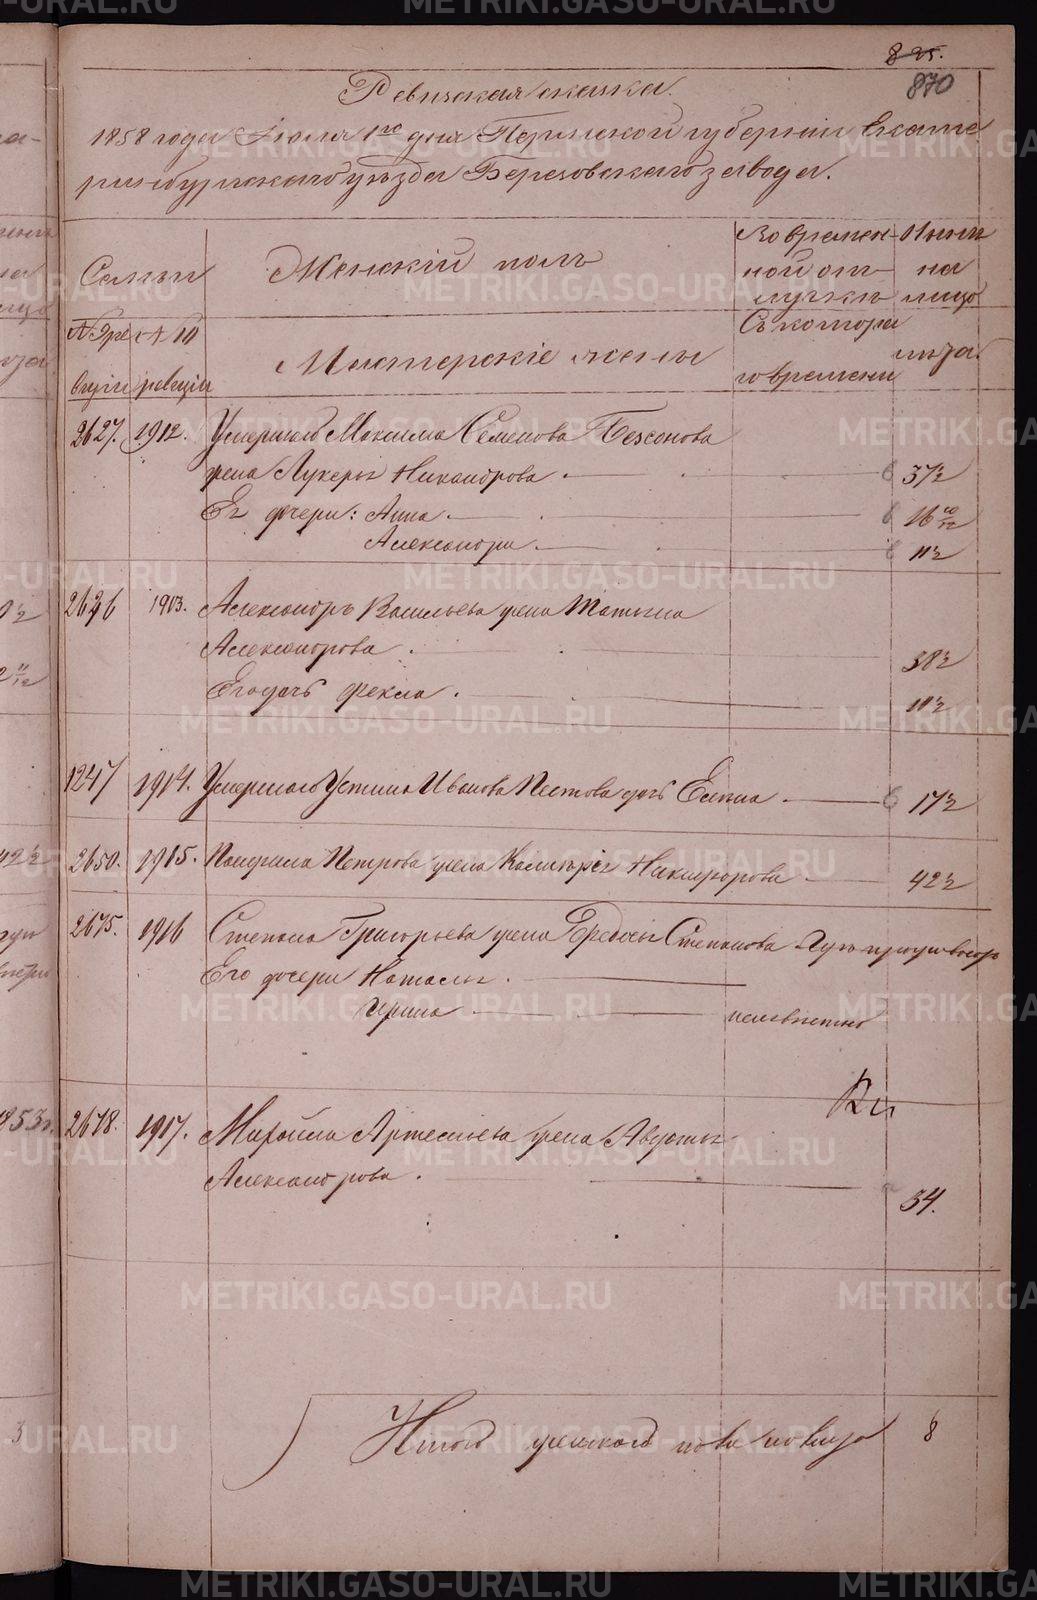 825.
870
Ревизская сказка.
1858 года Июля 1го дня Пермской губернии Екате
ринбургского уезда Березовского завода.
Семьи
Женскій полъ
Во времен-
ной от-
лучкѣ
Ныне
на
лицо
№ 9 ре
№ 10
ревизіи
Мастерскіе жоны
Съ котора
го времени
лѣта
2627. 1912. Умершаго Максима Семенова Безсонова
жена Лукерья Никандрова 37½
Ег дочери: Анна 16 10/12
Александра 11½
2626 1913. Александръ Васильева жена Татьяна
Александрова 38½
Его дочь Фекла 11½
1247 1914. Умершаго Устина Иванова Пестова дочь Елена 17½
2650. 1915. Панфила Петрова жена Никифорова 42½
2675. 1916 Степана Григорьева жена Федосья Степанова
Его дочери Наталья
Ирина неизвѣстно
2678. 1917. Михайла Артемьева жена Августа
Александрова 34.
Итого женского пола на лицо 8
METRIKI.GASO-URAL.RU